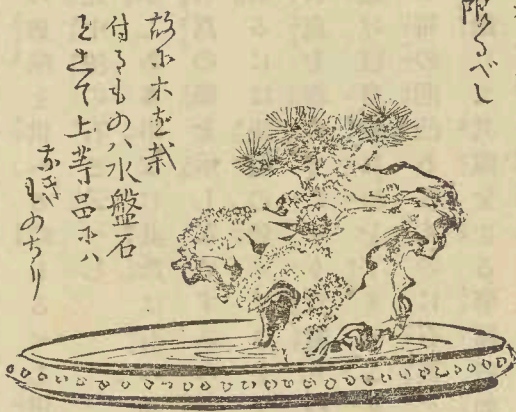 限るべし
故に木を栽
付るものハ水盤石
として上等品にハ
なき
ものなり